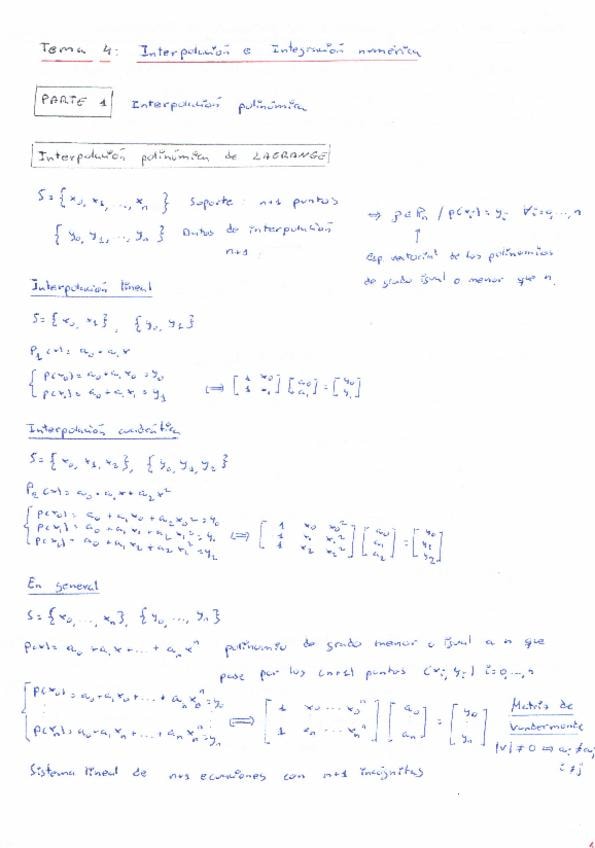 Tema 4: Interpolación e Integración numérica
PARTE 1 Interpolación polinómica
Interpolación polinómica de LAGRANGE
S = { x₀, x₁, ..., xₙ } Soporte : n+1 puntos
{ y₀, y₁, ..., yₙ } Datos de interpolación
n+1
⇒ p ∈ Pₙ / p(xᵢ) = yᵢ ∀i=0,...,n
↑
Esp. vectorial de los polinomios
de grado igual o menor que n.
Interpolación lineal
S = { x₀, x₁ }, { y₀, y₁ }
P₁(x) = a₀ + a₁x
{ p(x₀) = a₀ + a₁x₀ = y₀
p(x₁) = a₀ + a₁x₁ = y₁ ⟺ [ 1 x₀ ; 1 x₁ ] [ a₀ ; a₁ ] = [ y₀ ; y₁ ]
Interpolación cuadrática
S = { x₀, x₁, x₂ }, { y₀, y₁, y₂ }
P₂(x) = a₀ + a₁x + a₂x²
{ p(x₀) = a₀ + a₁x₀ + a₂x₀² = y₀
p(x₁) = a₀ + a₁x₁ + a₂x₁² = y₁ ⟺ [ 1 x₀ x₀² ; 1 x₁ x₁² ; 1 x₂ x₂² ] [ a₀ ; a₁ ; a₂ ] = [ y₀ ; y₁ ; y₂ ]
En general
S = { x₀, ..., xₙ }, { y₀, ..., yₙ }
p(x) = a₀ + a₁x + ... + aₙxⁿ polinomio de grado menor o igual a n que
pase por los (n+1) puntos (xᵢ, yᵢ) i=0,...,n
{ p(x₀) = a₀ + a₁x₀ + ... + aₙx₀ⁿ = y₀
⋮
p(xₙ) = a₀ + a₁xₙ + ... + aₙxₙⁿ = yₙ ⟺ [ 1 x₀ ... x₀ⁿ ; 1 xₙ ... xₙⁿ ] [ a₀ ; aₙ ] = [ y₀ ; yₙ ]
Matriz de
Vandermonte
|V| ≠ 0 ⟺ aᵢ ≠ aⱼ
i ≠ j
Sistema lineal de n+1 ecuaciones con n+1 incógnitas